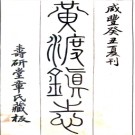 咸豐癸丑夏刊
黃渡鎮志
壽研堂章氏藏板